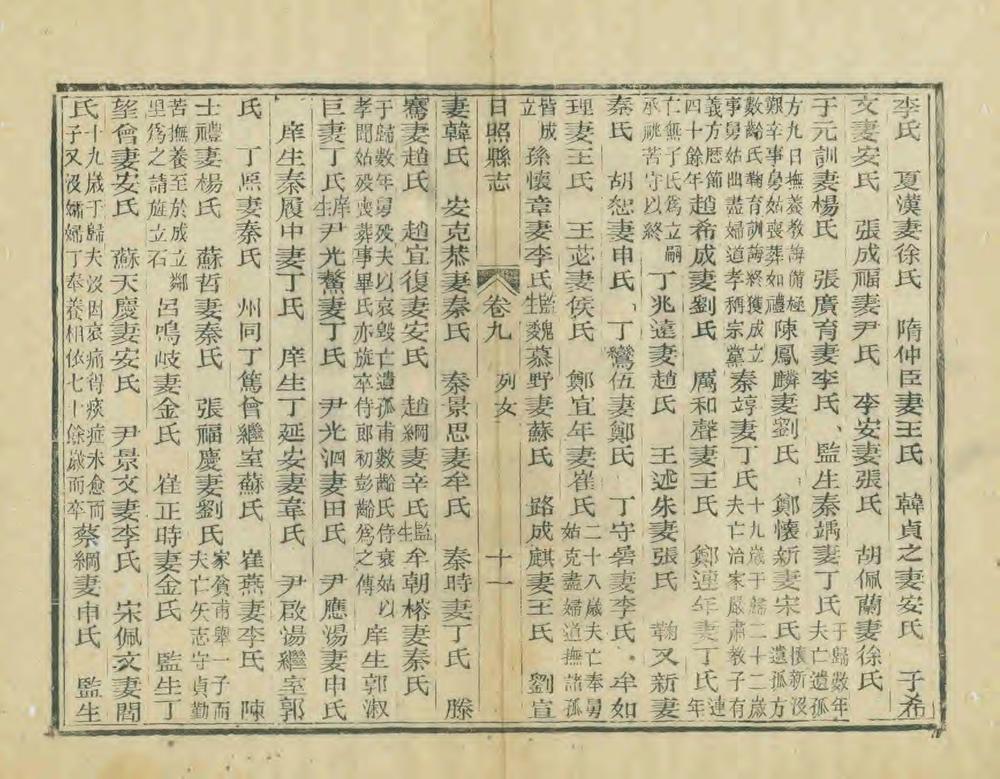 李氏　夏漢妻徐氏　隋仲臣妻王氏　韓貞之妻安氏　于希
文妻安氏　張成福妻尹氏　李安妻張氏　胡佩蘭妻徐氏
于元訓妻楊氏　張廣育妻李氏　監生秦竬妻丁氏于歸數年夫亡遺孤
方九日撫養教誨備極艱辛事舅姑喪葬如禮陳鳳麟妻劉氏　鄭懷新妻宋氏懷新沒遺孤方
數齡氏鞠育訓誨終獲成立事舅姑曲盡婦道孝稱宗黨秦竴妻丁氏十九歲于歸二十二歲夫亡治家嚴肅教子有
義方歷節四十餘年趙希成妻劉氏　厲和聲妻王氏　鄭連年妻丁氏連年
亡無子氏爲立嗣承祧苦守以終丁兆遠妻趙氏　王述朱妻張氏　鞠又新妻
秦氏　胡恕妻申氏　丁鸞伍妻鄭氏　丁守晷妻李氏　牟如
理妻王氏　王苾妻侯氏　鄭宜年妻崔氏二十八歲夫亡奉舅姑克盡婦道撫諸孤
皆成立孫懷章妻李氏　監生魏慕野妻蘇氏　路成麒妻王氏　劉宣
日照縣志　卷九　列女　十一
妻韓氏　安克恭妻秦氏　秦景思妻牟氏　秦時妻丁氏　滕
騫妻趙氏　趙宜復妻安氏　趙綱妻辛氏　監生牟朝榕妻秦氏
于歸數年舅歿夫以哀毀亡遺孤甫數齡氏侍衰姑以孝聞姑歿喪葬事畢氏亦旋卒侍郎初彭齡爲之傳　庠生郭淑
巨妻丁氏　庠生尹光鰲妻丁氏　尹光泗妻田氏　尹應湯妻申氏
庠生秦履中妻丁氏　庠生丁延安妻韋氏　尹啟湯繼室郭
氏　丁熈妻秦氏　州同丁篤會繼室蘇氏　崔燕妻李氏　陳
士禮妻楊氏　蘇哲妻秦氏　張福慶妻劉氏家貧甫舉一子而夫亡矢志守貞勤
苦撫養至於成立鄰里爲之請旌立石　呂鳴岐妻金氏　崔正時妻金氏　監生丁
望會妻安氏　蘇天慶妻安氏　尹景文妻李氏　宋佩文妻閻
氏十九歲于歸夫沒因哀痛得痰症未愈而子又沒孀婦丁奉養相依七十餘歲而卒蔡綱妻申氏　監生